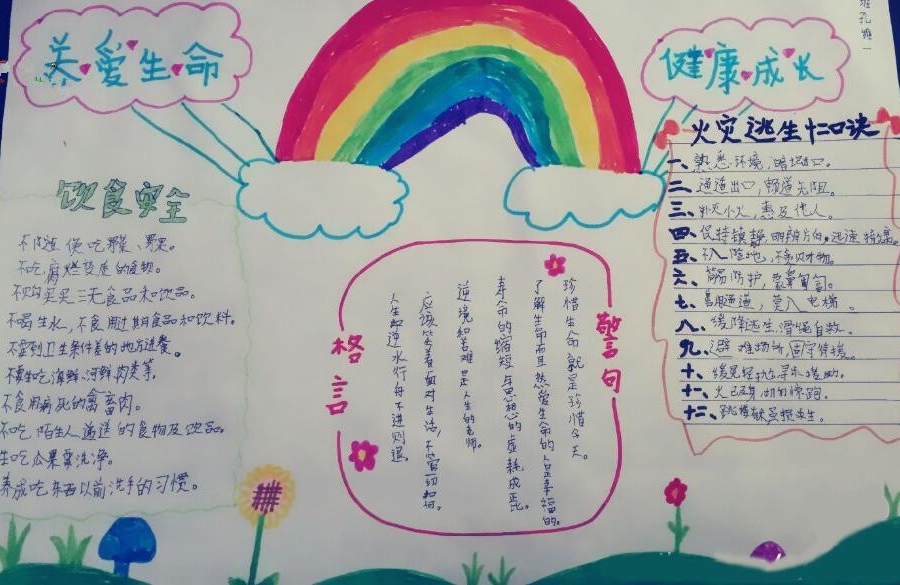 关爱生命
健康成长
饮食安全
不吃腐烂变质的食物。
不购买三无食品和饮品。
不喝生水,不食用过期食品和饮料。
不要到卫生条件差的地方进餐。
不要生吃海鲜、河鲜、肉类等。
不食用病死的禽畜肉。
不吃陌生人递送的食物及饮品。
生吃瓜果要洗净。
养成吃东西以前洗手的习惯。
格言
警句
珍惜生命就是珍惜今天。
了解生命而且热爱生命的人是幸福的。
寿命的缩短与思想的虚耗成正比。
逆境和苦难是人生的老师。
应该笑着面对生活,不管一切如何。
人生如逆水行舟不进则退。
火灾逃生十二口诀
一、熟悉环境,暗记出口。
二、通道出口,畅道无阻。
三、扑灭小火,惠及他人。
四、保持镇静,明辨方向,迅速
五、不入险地,不贪财物。
六、简易防护,蒙鼻匍匐。
七、善用通道,莫入电梯。
八、缓降逃生,滑绳自救。
九、避难场所,固守待援。
十、缓晃轻抛,寻求援助。
十一、火已及身,切勿惊跑。
十二、跳楼有术,虽损求生。